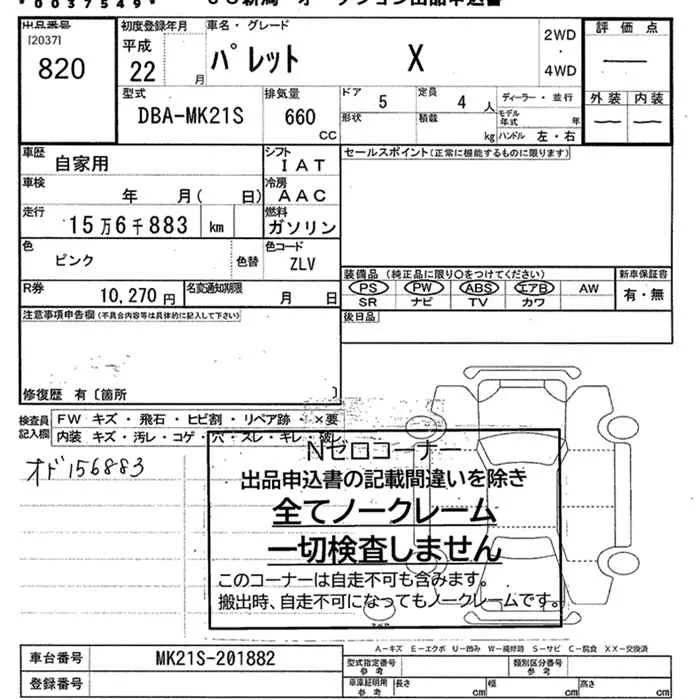 *0037549*
出品番号
[2037]
820
初度登録年月
平成
22 月
車名・グレード
パレット X
2WD
・
4WD
評価点
―
外装 内装
― ―
型式
DBA-MK21S
排気量
660
CC
ドア
5
定員
4 人
ディーラー・並行
形状
積載
kg
モデル年式 年
ハンドル 左・右
車歴
自家用
シフト
IAT
セールスポイント(正常に機能するものに限ります)
車検
年 月( 日)
冷房
AAC
走行
15万6千883 km
燃料
ガソリン
色
ピンク
色替
色コード
ZLV
装備品(純正品に限り○をつけてください)
新車保証書
PS PW ABS エアB AW
SR ナビ TV カワ
有・無
R券
10,270円
名変通知期限
月 日
注意事項申告欄(不具合内容等は具体的に記入して下さい)
後日品
修復歴 有〔箇所 〕
検査員
記入欄
FW キズ・飛石・ヒビ割・リペア跡・×要
内装 キズ・汚レ・コゲ・穴・スレ・キレ・破レ
オド156883
Nゼロコーナー
出品申込書の記載間違いを除き
全てノークレーム
一切検査しません
このコーナーは自走不可も含みます。
搬出時、自走不可になってもノークレームです。
A-キズ E-エクボ U-凹み W-補修跡 S-サビ C-腐食 XX-交換済
車台番号
MK21S-201882
型式指定番号
参考
類別区分番号
参考
登録番号
車庫証明用
参考
長さ cm
幅 cm
高さ cm